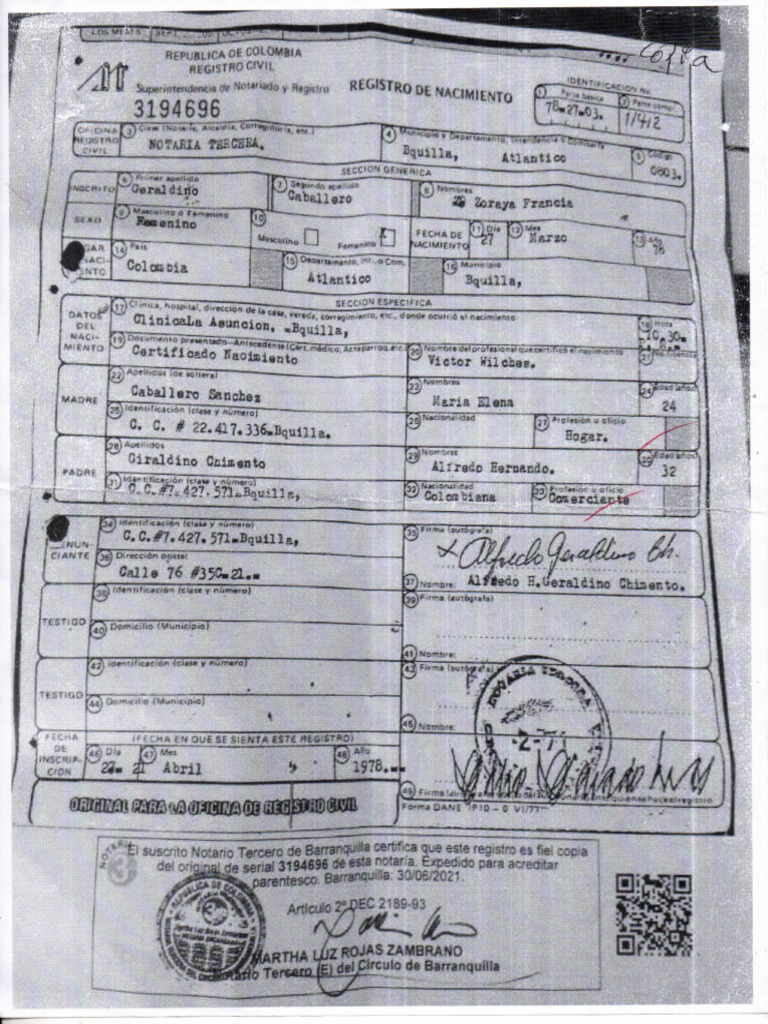 LOS MESES
Copia
REPUBLICA DE COLOMBIA
REGISTRO CIVIL
Superintendencia de Notariado y Registro
3194696
REGISTRO DE NACIMIENTO
IDENTIFICACION No.
1 Parte básica
78-27-03.
2 Parte comp.
OFICINA REGISTRO CIVIL
3 Clase (Notaría, Alcaldía, Corregiduría, etc.)
NOTARIA TERCERA.
4 Municipio y Departamento, Intendencia o Comisaría
Bquilla, Atlantico
5 Código
0803.
SECCION GENERICA
INSCRITO
6 Primer apellido
Geraldino
7 Segundo apellido
Caballero
8 Nombres
Zoraya Francia
SEXO
9 Masculino o Femenino
Femenino
10
Masculino
Femenino X
FECHA DE NACIMIENTO
11 Día
27
12 Mes
Marzo
13 Año
78
14 País
Colombia
15 Departamento, Int. o Com.
Atlantico
16 Municipio
Bquilla,
SECCION ESPECIFICA
DATOS DEL NACIMIENTO
17 Clínica, hospital, dirección de la casa, vereda, corregimiento, etc., donde ocurrió el nacimiento
ClinicaLa Asuncion. -Bquilla,
18 Hora
10.30-
19 Documento presentado-Antecedente (Cert. médico, Acta parroq. etc.)
Certificado Nacimiento
20 Nombre del profesional que certificó el nacimiento
Victor Wilches.
21 No. licencia
MADRE
22 Apellidos (de soltera)
Caballero Sanchez
23 Nombres
Maria Elena
24 Edad años
24
25 Identificación (clase y número)
C. C. # 22.417.336-Bquilla.
26 Nacionalidad
27 Profesión u oficio
Hogar.
PADRE
28 Apellidos
Giraldino Chimento
29 Nombres
Alfredo Hernando.
30 Edad años
32
31 Identificación (clase y número)
C.C.#7.427.571-Bquilla,
32 Nacionalidad
Colombiana
33 Profesión u oficio
Comerciante
DENUNCIANTE
34 Identificación (clase y número)
C.C.#7.427.571-Bquilla,
35 Firma (autógrafa)
Alfredo Geraldino Ch.
36 Dirección postal
Calle 76 #35C-21.-
37 Nombre: Alfredo H.Geraldino Chimento.
TESTIGO
38 Identificación (clase y número)
39 Firma (autógrafa)
40 Domicilio (Municipio)
41 Nombre:
TESTIGO
42 Identificación (clase y número)
43 Firma (autógrafa)
44 Domicilio (Municipio)
45 Nombre:
NOTARIA TERCERA
FECHA DE INSCRIPCION
(FECHA EN QUE SE SIENTA ESTE REGISTRO)
46 Día
21
47 Mes
Abril
48 Año
1978.--
49 Firma
ORIGINAL PARA LA OFICINA DE REGISTRO CIVIL
Forma DANE IP10 - 0 VI/77
NOTARIA 3
El suscrito Notario Tercero de Barranquilla certifica que este registro es fiel copia
del original de serial 3194696 de esta notaría. Expedido para acreditar
parentesco. Barranquilla: 30/06/2021.
Artículo 2º DEC 2189-93
REPUBLICA DE COLOMBIA
MARTHA LUZ ROJAS ZAMBRANO
Notario Tercero (E) del Circulo de Barranquilla